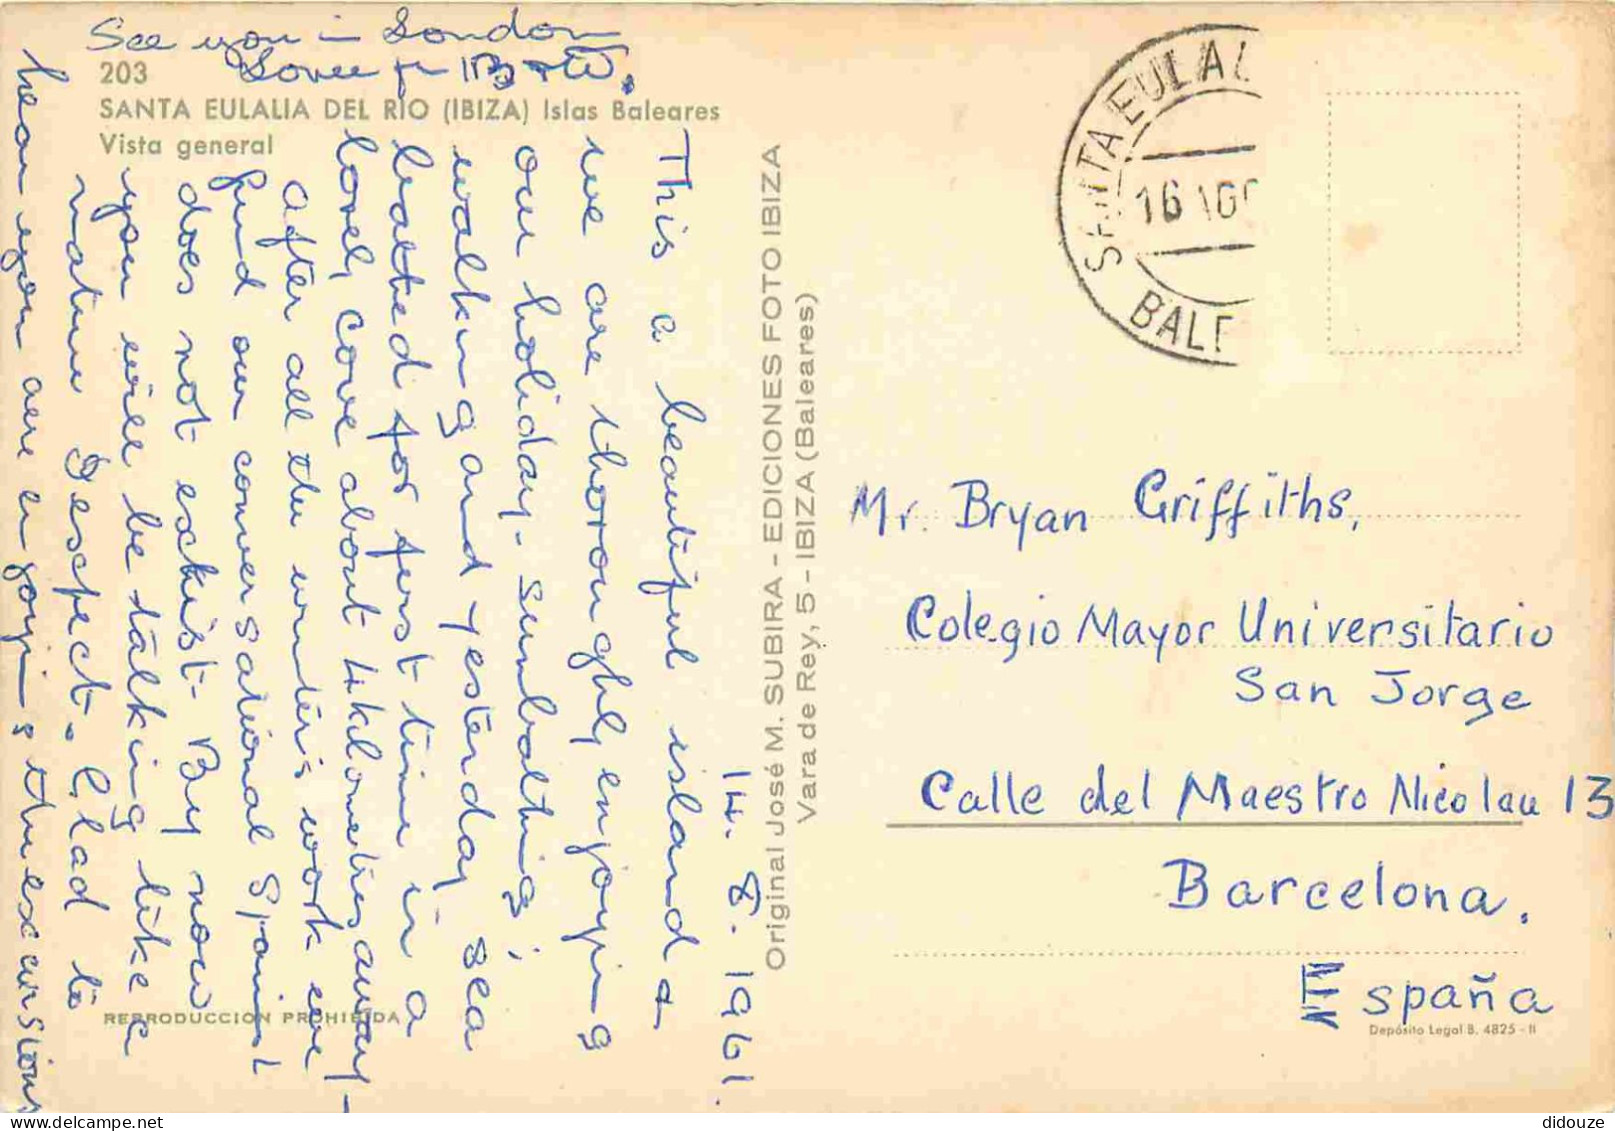 See you in London
Love from B + W.
203
SANTA EULALIA DEL RIO (IBIZA) Islas Baleares
Vista general
14. 8. 1961.
This a beautiful island &
we are thoroughly enjoying
our holiday - sunbathing,
walking and yesterday sea
bathed for first time in a
lovely cove about 4 kilometres away -
After all the winter's work we
find our conversational Spanish
does not exkist - By now
you will be talking like a
native I expect. Glad to
hear you are enjoying the excursions
Original José M. SUBIRA - EDICIONES FOTO IBIZA
Vara de Rey, 5 - IBIZA (Baleares)
SANTA EULAL
16 AGO
BALE
Mr. Bryan Griffiths,
Colegio Mayor Universitario
San Jorge
Calle del Maestro Nicolau 13
Barcelona.
España
REPRODUCCION PROHIBIDA
Depósito Legal B. 4825 - II
didouze